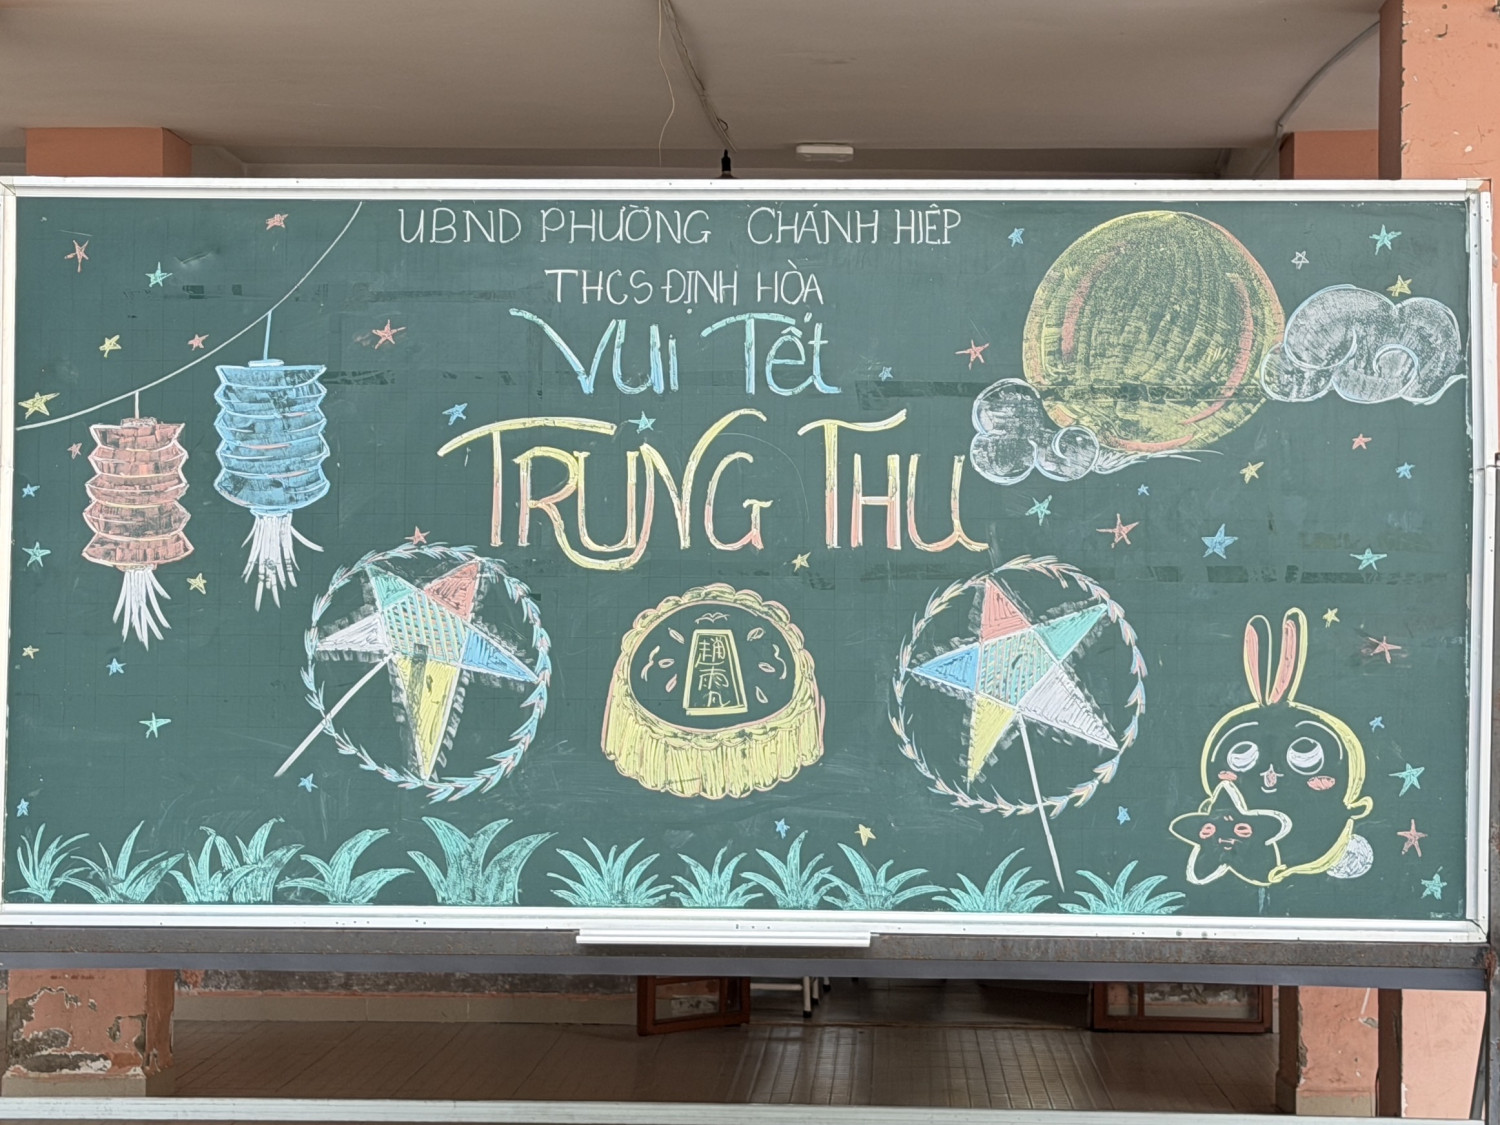 UBND PHƯỜNG CHÁNH HIỆP
THCS ĐỊNH HÒA
VUI TẾT
TRUNG THU
雨